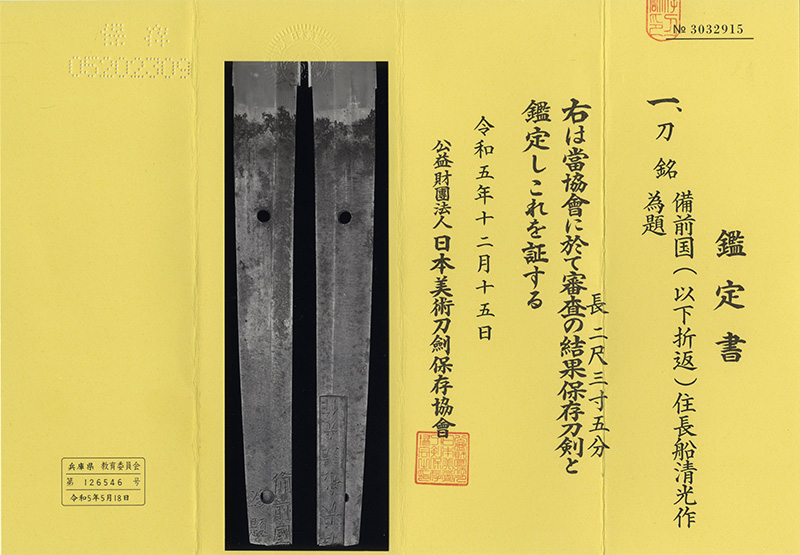 № 3032915
鑑定書
一、刀 銘 備前国(以下折返)住長船清光作
為題
長 二尺三寸五分
右は當協會に於て審査の結果保存刀剣と
鑑定しこれを証する
令和五年十二月十五日
公益財團法人 日本美術刀劍保存協會
保存
05202309
兵庫県 教育委員会
第 126546 号
令和5年5月18日
備前国
為題